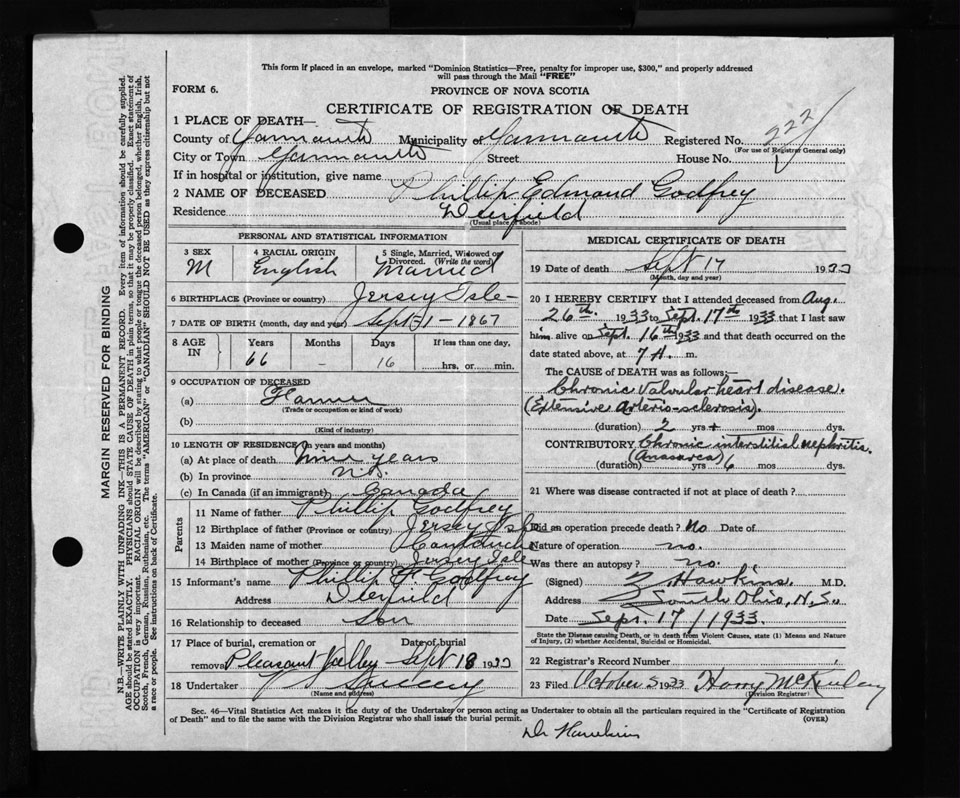 This form if placed in an envelope, marked "Dominion Statistics—Free, penalty for improper use, $300," and properly addressed
will pass through the Mail "FREE"
FORM 6.
PROVINCE OF NOVA SCOTIA
CERTIFICATE OF REGISTRATION OF DEATH
1 PLACE OF DEATH—
County of Yarmouth Municipality of Yarmouth Registered No. 222
(For use of Registrar General only)
City or Town Yarmouth Street House No.
If in hospital or institution, give name
2 NAME OF DECEASED Phillip Edmand Godfrey
Residence Deerfield
(Usual place of abode)
MARGIN RESERVED FOR BINDING
N.B.—WRITE PLAINLY WITH UNFADING INK—THIS IS A PERMANENT RECORD. Every item of information should be carefully supplied.
AGE should be stated EXACTLY. PHYSICIANS should STATE CAUSE OF DEATH in plain terms, so that it may be properly classified. Exact statement of
OCCUPATION is very important. RACIAL ORIGIN will be described by stating to what people or tongue the deceased person belonged, whether English, Irish,
Scotch, French, German, Russian, Ruthenian, etc. The terms "AMERICAN" or "CANADIAN" SHOULD NOT BE USED as they express citizenship but not
a race or people. See instructions on back of Certificate.
PERSONAL AND STATISTICAL INFORMATION
3 SEX
M
4 RACIAL ORIGIN
English
5 Single, Married, Widowed or
Divorced. (Write the word)
Married
6 BIRTHPLACE (Province or country) Jersey Isle
7 DATE OF BIRTH (month, day and year) Sept 1 - 1867
8 AGE IN
Years Months Days If less than one day,
66 - 16 hrs. or min.
9 OCCUPATION OF DECEASED
(a) Farmer
(Trade or occupation or kind of work)
(b)
(Kind of industry)
10 LENGTH OF RESIDENCE (In years and months)
(a) At place of death nine years
(b) In province N.S.
(c) In Canada (if an immigrant) Canada
Parents
11 Name of father Phillip Godfrey
12 Birthplace of father (Province or country) Jersey Isle
13 Maiden name of mother
14 Birthplace of mother (Province or country) Jersey Isle
15 Informant's name Phillip F. Godfrey
Address Deerfield
16 Relationship to deceased son
17 Place of burial, cremation or removal Pleasant Valley
Date of burial Sept 18 1933
18 Undertaker V S Sweeny
(Name and address)
MEDICAL CERTIFICATE OF DEATH
19 Date of death Sept 17 1933
(Month, day and year)
20 I HEREBY CERTIFY that I attended deceased from Aug.
26th. 1933 to Sept. 17th 1933 that I last saw
him alive on Sept. 16th 1933 and that death occurred on the
date stated above, at 7 A. m.
The CAUSE OF DEATH was as follows:—
Chronic valvular heart disease.
(Extensive arterio-sclerosis).
(duration) 2 yrs + mos dys.
CONTRIBUTORY Chronic interstitial nephritis.
(Anasarca)
(duration) yrs 6 mos dys.
21 Where was disease contracted if not at place of death?
Did an operation precede death? No Date of
Nature of operation no.
Was there an autopsy? no.
(Signed) Z Hawkins M.D.
Address South Ohio, N.S.
Date Sept. 17/1933.
State the Disease causing Death, or in death from Violent Causes, state (1) Means and Nature
of Injury, (2) whether Accidental, Suicidal or Homicidal.
22 Registrar's Record Number
23 Filed October 5 1933 Harry McKinlay
(Division Registrar)
Sec. 46—Vital Statistics Act makes it the duty of the Undertaker or person acting as Undertaker to obtain all the particulars required in the "Certificate of Registration
of Death" and to file the same with the Division Registrar who shall issue the burial permit.
(OVER)
Dr Hawkins